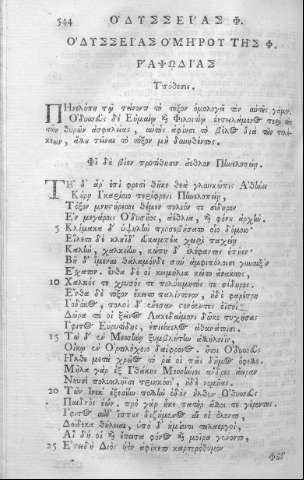 544 ὈΔΥΣΣΕΊΑΣ Φ.
ὈΔΥΣΣΕΊΑΣ ὉΜΉΡΟΥ ΤΗ͂Σ Φ.
ῬΑΨΩΔΊΑΣ
Ὑπόθεσις.
Πηνελόπη τῷ τείναντι τὸ τόξον ὁμολογεῖ τὸν αὐτῆς γάμον.
Ὀδυσσεὺς δὲ Εὐμαίῳ καὶ Φιλοιτίῳ
τῶν θυρῶν ἀσφαλείας, αὐτὸς ἀφίησι τὸ βέλος διὰ τῶν πελέ-
κεων,
Φῖ δὲ βιὸν προτίθησιν ἄεθλον Πηνελοπείη.
Τῇ δ' ἄρ' ἐπὶ φρεσὶ θῆκε θεὰ γλαυκῶπις Ἀθήνη
Κούρῃ Ἰκαρίοιο περίφρονι Πηνελοπείῃ,
Τόξον μνηστήρεσσι θέμεν πολιόν τε σίδηρον
Ἐν μεγάροις Ὀδυσῆος, ἀέθλια, καὶ φόνου ἀρχήν.
5 Κλίμακα δ' ὑψηλὴν προσεβήσατο οἷο δόμοιο·
Εἵλετο δὲ κληῖδ' εὐκαμπέα χειρὶ παχείῃ
Καλὴν, χαλκείην, κώπη δ' ἐλέφαντος ἐπῆεν·
Βῆ δ' ἴμεναι θάλαμόνδε σὺν ἀμφιπόλοισι γυναιξὶν
Ἔσχατον. ἔνθα δέ οἱ κειμήλια κεῖτο ἄνακτος,
10 Χαλκός τε χρυσός τε πολύκμητός τε σίδηρος.
Ἔνθα δὲ τόξον ἔκειτο παλίντονον, ἠδὲ φαρέτρη
Ἰοδόκος, πολλοὶ δ' ἔνεσαν στονόεντες ὀϊστοί,
Δῶρα τά οἱ ξεῖνος Λακεδαίμονι δῶκε τυχήσας
Ἴφιτος Εὐρυτίδης, ἐπιείκελος ἀθανάτοισι.
15 Τὼ δ' ἐν Μεσσήνῃ ξυμβλήτην ἀλλήλοιϊν,
Οἴκῳ ἐν Ὀρτιλόχοιο δαΐφρονος. ἤτοι Ὀδυσσεὺς
Ἦλθε μετὰ χρεῖος, τό ῥά οἱ πᾶς δῆμος ὄφελλε.
Μῆλα γὰρ ἐξ Ἰθάκης Μεσσήνιοι ἄνδρες ἄειραν
Νηυσὶ πολυκλήϊσι τριηκόσι', ἠδὲ νομῆας.
20 Τῶν ἕνεκ' ἐξεσίην πολλὴν ὁδὸν ἦλθεν Ὀδυσσεὺς
Παιδνὸς ἐών. πρὸ γὰρ ἧκε πατὴρ ἄλλοι τε γέροντες.
Ἴφιτος αὖθ' ἵππους διζήμενος αἵ οἱ ὄλοντο,
Δώδεκα θήλειαι, ὑπὸ δ' ἡμίονοι ταλαεργοί,
Αἳ δή οἱ καὶ ἔπειτα φόνος καὶ μοῖρα γένοντο,
25 Ἐπειδὴ Διὸς υἱὸν ἀφίκετο καρτερόθυμον
Φῶθ'